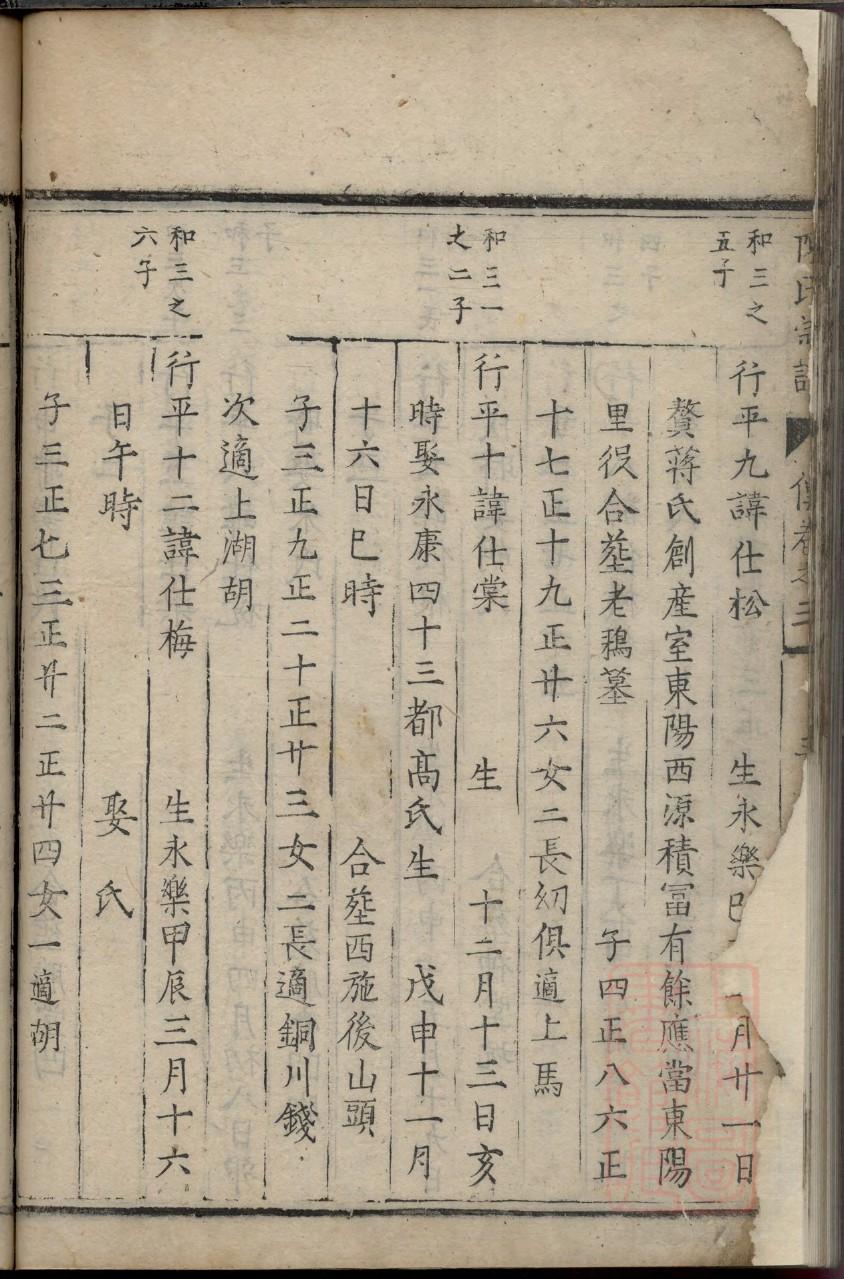 氏宗譜 傳卷之三
和三之
五子
行平九諱仕松 生永樂 月廿一日
贅蔣氏創產室東陽西源積冨有餘應當東陽
里役合塟老鴉墓 子四正八六正
十七正十九正廿六女二長纫俱適上馬
和三一
之二子
行平十諱仕棠 生 十二月十三日亥
時娶永康四十三都高氏生 戊申十一月
十六日巳時 合塟西施後山頭
子三正九正二十正廿三女二長適銅川錢
次適上湖胡
和三之
六子
行平十二諱仕梅 生永樂甲辰三月十六
日午時 娶氏
子三正七三正廿二正廿四女一適胡